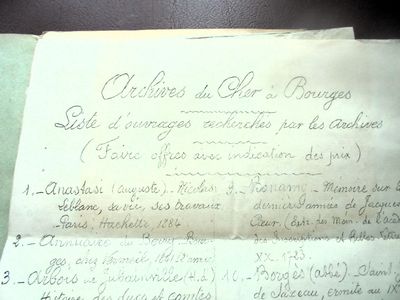 Archives du Cher à Bourges
Liste d'ouvrages recherchés par les Archives
(Faire offres avec indication des prix)
1. _ Anastasi (Auguste). Nicolas
Leblanc, sa vie, ses travaux
Paris, Hachette, 1884
2. _ Annuaire du Berry Bour-
ges,
3. _ Arbois de Jubainville (H. d')
Histoire des ducs et comtes
9. Bonamy _ Mémoire sur les
dernières années de Jacques
Cœur. (Extr. des Mém. de l'acad.
des Inscriptions et Belles lettres
XX. 1723.
10. _ Borgès (abbé) _ Saint
ermite au IXe